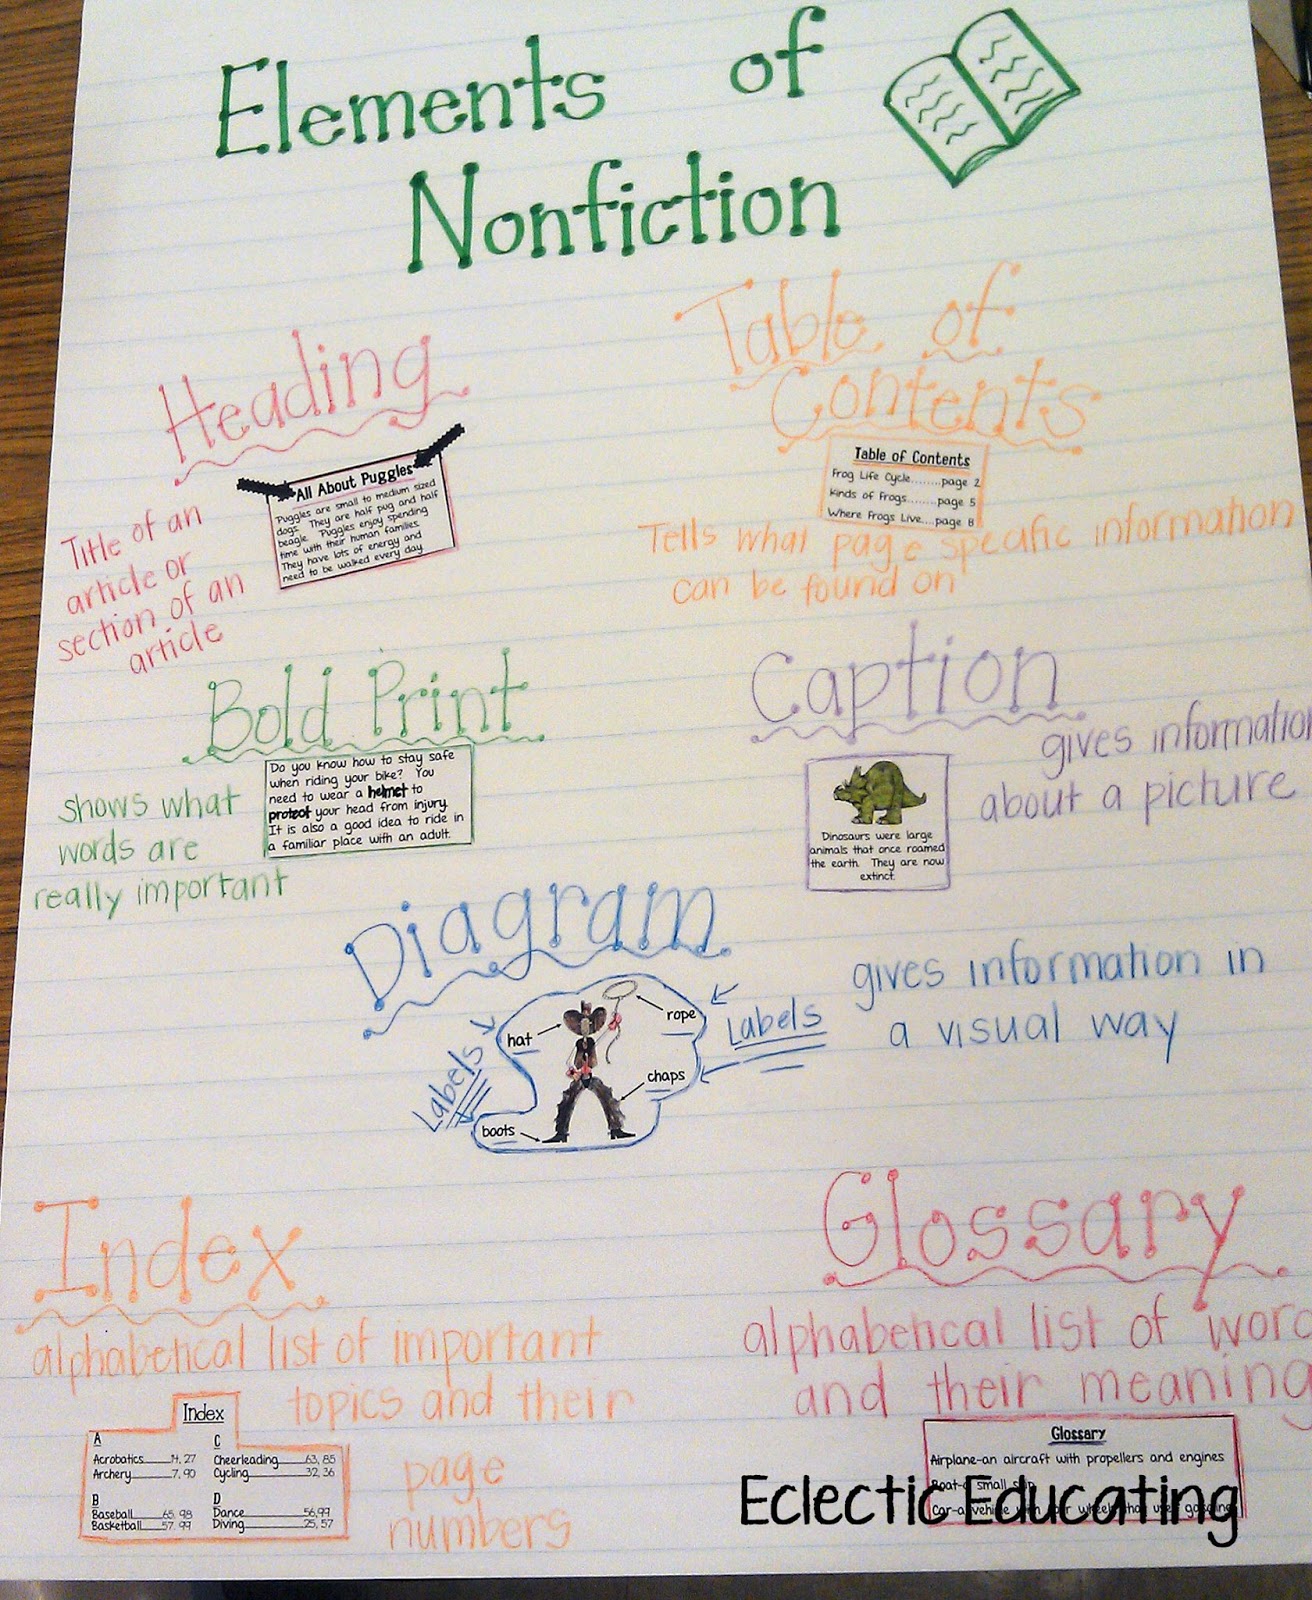 Elements of
Nonfiction
Heading
All About Puggles
Puggles are small to medium sized
dogs. They are half pug and half
beagle. Puggles enjoy spending
time with their human families.
They have lots of energy and
need to be walked every day.
Title of an
article or
section of an
article
Table of
Contents
Table of Contents
Frog Life Cycle........page 2
Kinds of Frogs........page 5
Where Frogs Live....page 8
Tells what page specific information
can be found on
Bold Print
Do you know how to stay safe
when riding your bike? You
need to wear a helmet to
protect your head from injury.
It is also a good idea to ride in
a familiar place with an adult.
shows what
words are
really important
Caption
gives information
about a picture
Dinosaurs were large
animals that once roamed
the earth. They are now
extinct.
Diagram
gives information in
a visual way
Labels
Labels
hat
rope
chaps
boots
Index
alphabetical list of important
topics and their
page
numbers
Index
A
Acrobatics 14, 27
Archery 7, 90
B
Baseball 65, 98
Basketball 57, 99
C
Cheerleading 63, 85
Cycling 32, 36
D
Dance 56,99
Diving 25, 57
Glossary
alphabetical list of word
and their meaning
Glossary
Airplane-an aircraft with propellers and engines
Boat-a small ship
Car-a vehicle with four wheels that uses
Eclectic Educating